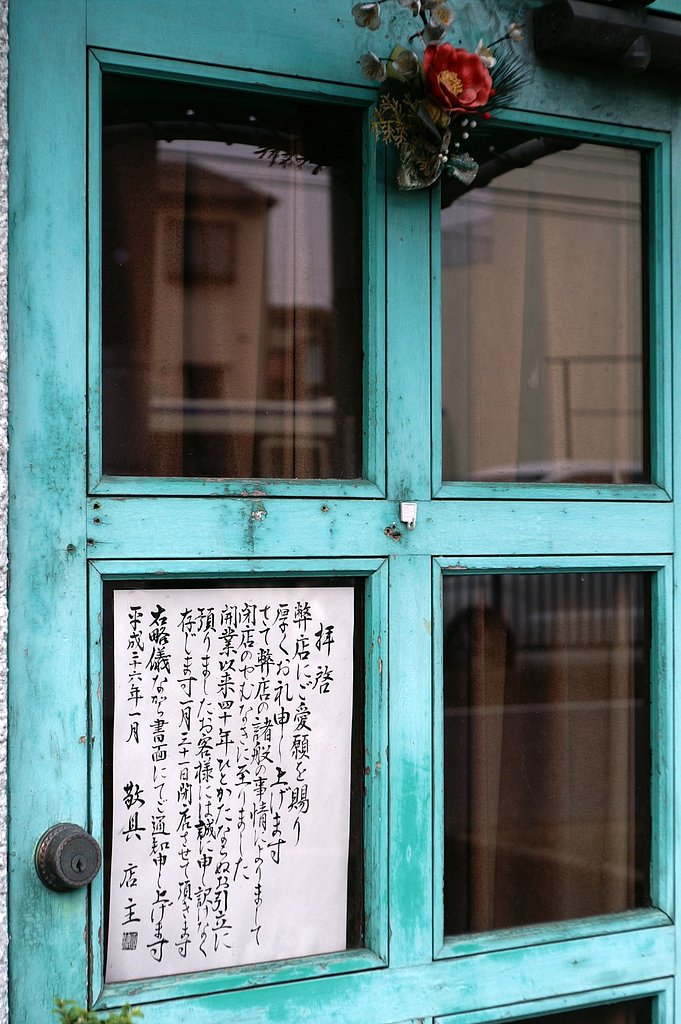 拝啓
弊店にご愛顧を賜り
厚くお礼申し上げます
さて弊店の諸般の事情によりまして
閉店のやむなきに至りました
開業以来四十年ひとかたならぬお引立に
預りましたお客様には誠に申し訳けなく
存じます一月三十一日閉店させて頂きます
右略儀ながら書面にてご通知申し上げます
平成二六年一月 敬具 店主